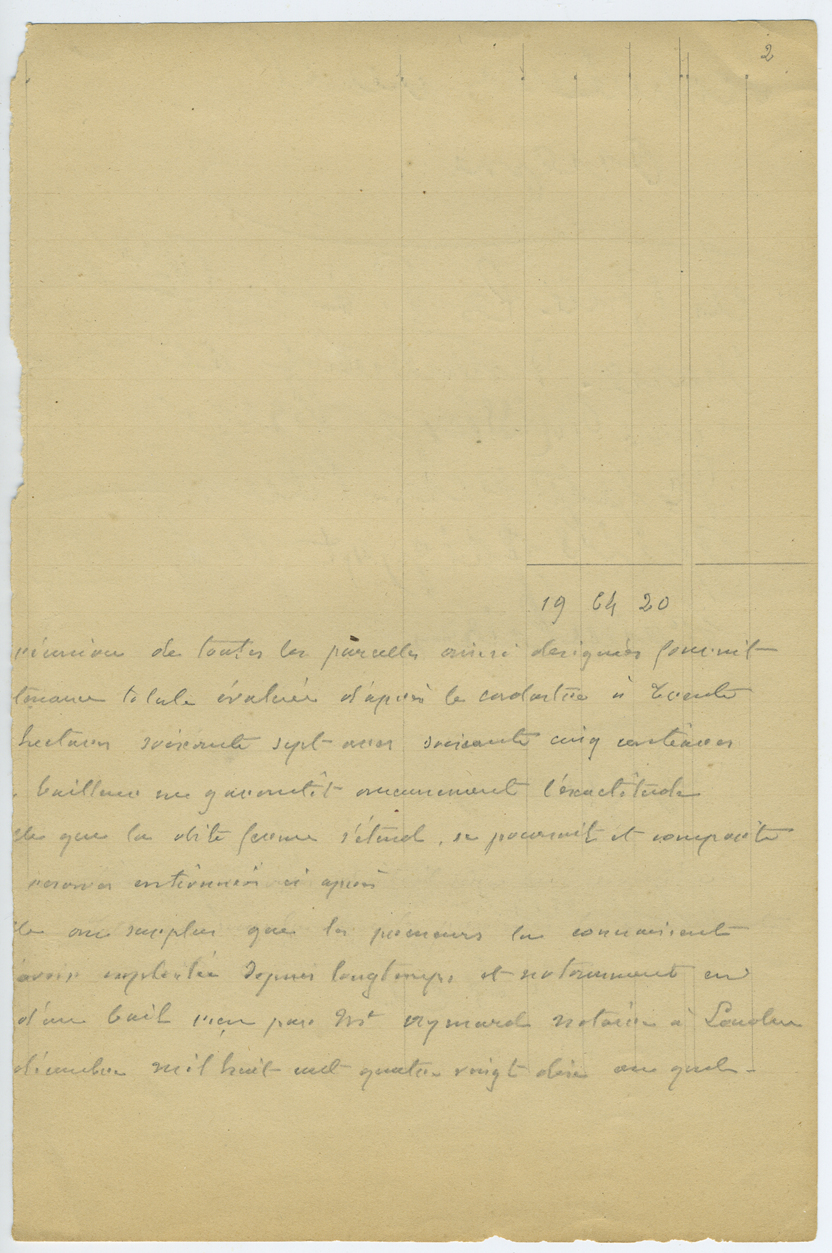 2
19 64 20
réunion de toutes les parcelles ainsi designées fournit
tenance totale évaluée d'après le cadastre à trente
hectares soixante sept ares soixante cinq centiares
bailleur ne garantit aucunement l'exactitude
que la dite ferme s'étend, se poursuit et comporte
réserves ci après
au surplus que les preneurs la connaissent
avoir exploitée depuis longtemps et notamment en
d'un bail reçu par Mt Aymard notaire à
décembre mil huit cent quatre vingt dix au quel-